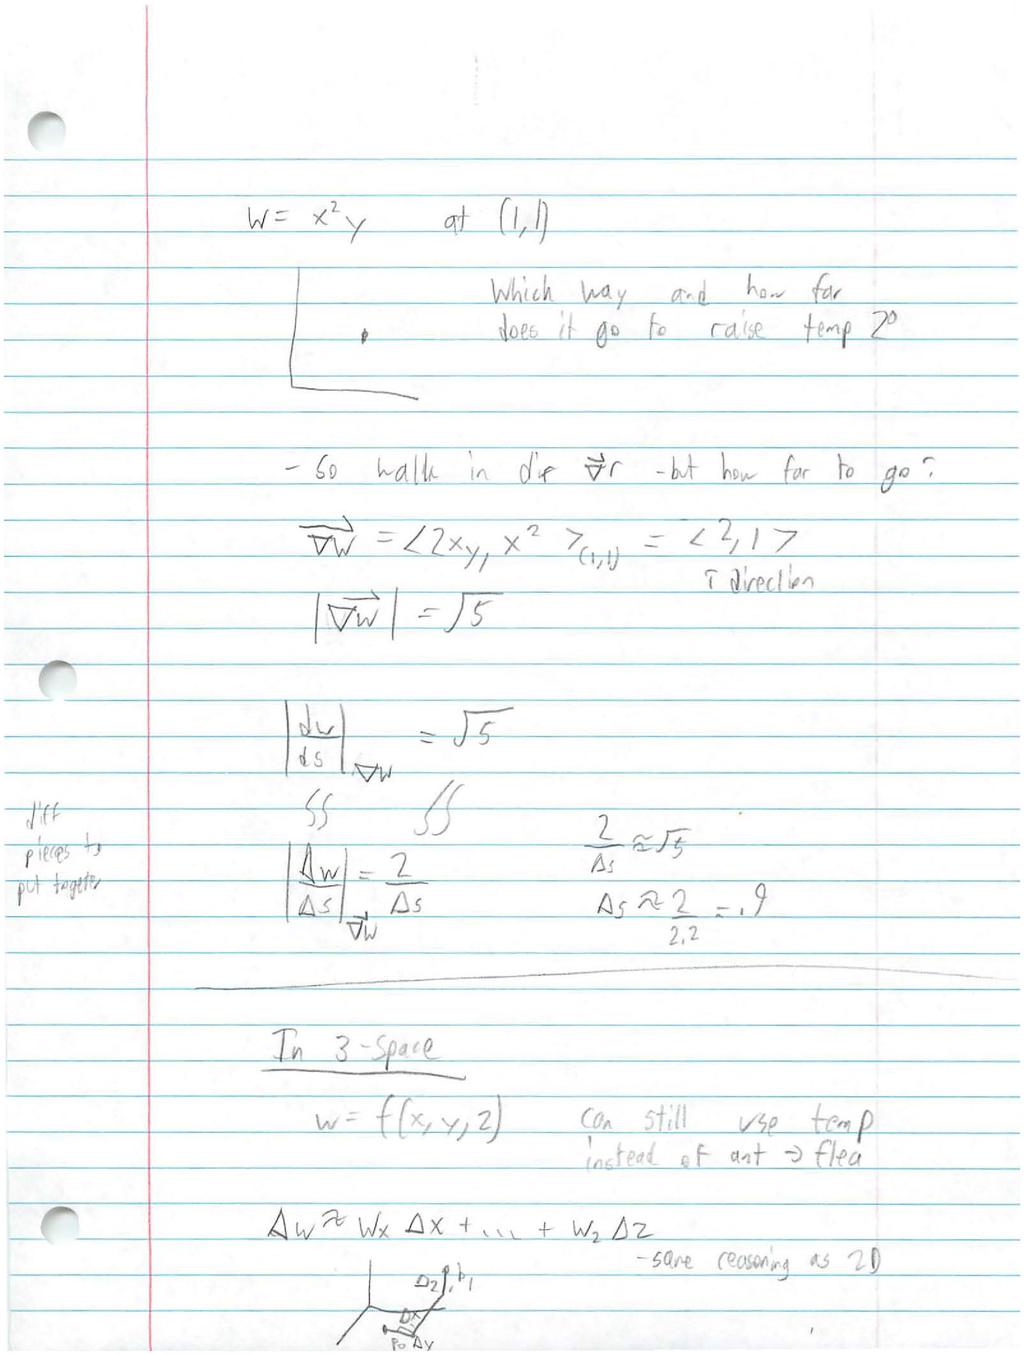 W = x²y at (1,1)
Which way and how far
does it go to raise temp 2°
- So walk in dir ∇r - but how far to go?
∇W = <2xy, x²>(1,1) = <2,1>
↑ direction
|∇W| = √5
|dw/ds|∇W = √5
SS SS
diff
pieces to
put togeter
|Δw/Δs|∇W = 2/Δs
2/Δs ≈ √5
Δs ≈ 2/2.2 = .9
In 3-Space
w = f(x, y, z)
can still use temp
instead of ant → flea
Δw ≈ Wx Δx + ... + Wz Δz
- same reasoning as 2D
Δz P1
Δx
P0 Δy